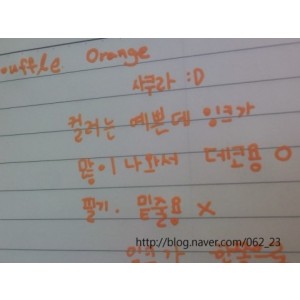 ouffle Orange
사쿠라 :D
컬러는 예쁜데 잉크가
많이 나와서 데코용 O
필기. 밑줄용 X
http://blog.naver.com/062_23